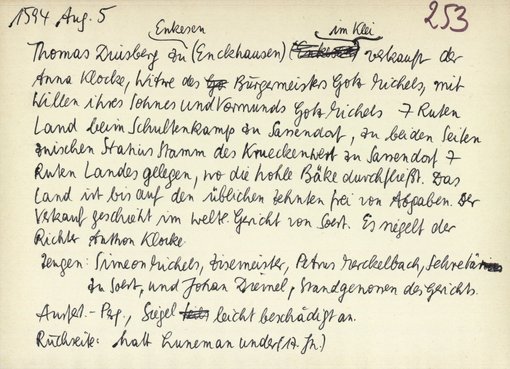 1594 Aug. 5 253
Enkesen im Klei
Thomas Duisberg zu (Enckhausen) verkauft der
Anna Klocke, Witwe des Bürgermeisters Gotz Michels, mit
Willen ihres Sohnes und Vormunds Gotz Michels 7 Ruten
Land beim Schultenkamp zu Sassendorf, zu beiden Seiten
zwischen Statius Stamm des Krueckenwert zu Sassendorf 7
Ruten Landes gelegen, wo die hohle Bäke durchfließt. Das
Land ist bis auf den üblichen Zehnten frei von Abgaben. Der
Verkauf geschieht im welt. Gericht von Soest. Es siegelt der
Richter Anthon Klocke.
Zeugen: Simeon Michels, Zisemeister, Petrus Merckelbach, Sekretär
zu Soest, und Johan Dremel, Standgenossen des Gerichts.
Ausfert.-Perg., Siegel leicht beschädigt an.
Rückseite: Malt Luneman under (17. Jh.)